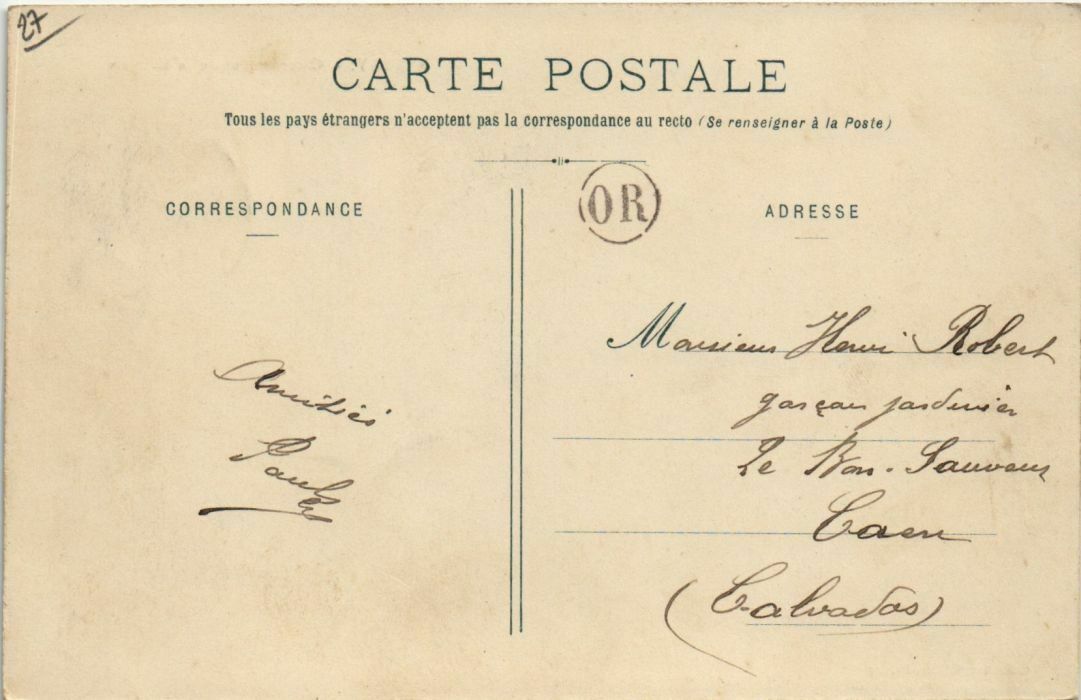 27
CARTE POSTALE
Tous les pays étrangers n'acceptent pas la correspondance au recto (Se renseigner à la Poste)
OR
CORRESPONDANCE
Amitiés
Paul
ADRESSE
Monsieur Henri Robert
garçon jardinier
Le Bon-Sauveur
Caen
(Calvados)